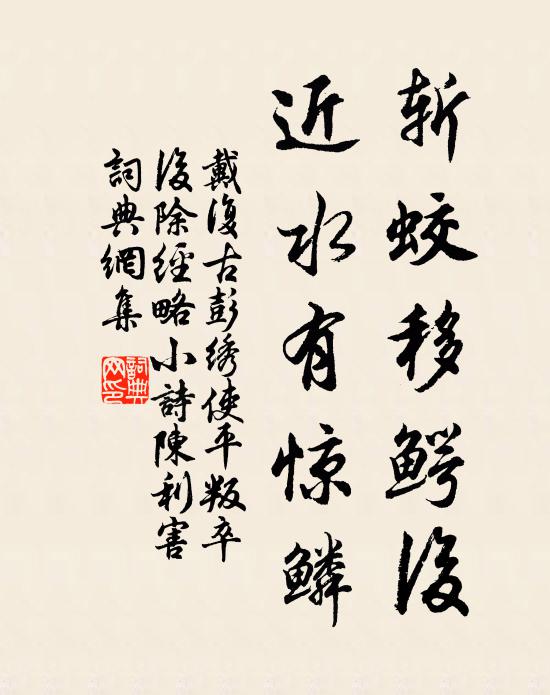 斩蛟移鳄後
近水有惊鳞
戴復古彭绣使平叛卒
後除經略小詩陳利害
詞典網集
詞典网印